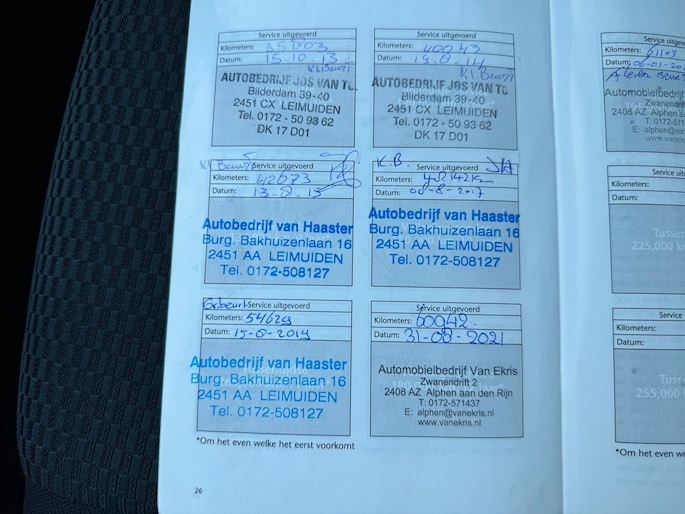 Service uitgevoerd
Kilometers: 35003
Datum: 15.10.13
Kl Beurt
AUTOBEDRIJF JOS VAN TOL
Bilderdam 39-40
2451 CX LEIMUIDEN
Tel. 0172 - 50 93 62
DK 17 D01
Service uitgevoerd
Kilometers: 40043
Datum:
Kl Beurt
AUTOBEDRIJF JOS VAN TO
Bilderdam 39-40
2451 CX LEIMUIDEN
Tel. 0172 - 50 93 62
DK 17 D01
Kl Beurt
Service uitgevoerd
Kilometers: 42673
Datum: 13-8-15
Autobedrijf van Haaster
Burg. Bakhuizenlaan 16
2451 AA LEIMUIDEN
Tel. 0172-508127
K.B.
Service uitgevoerd
Kilometers:
Datum: 08-8-2017
Autobedrijf van Haaster
Burg. Bakhuizenlaan 16
2451 AA LEIMUIDEN
Tel. 0172-508127
Gr.beurt Service uitgevoerd
Kilometers: 54629
Datum: 15-8-2019
Autobedrijf van Haaster
Burg. Bakhuizenlaan 16
2451 AA LEIMUIDEN
Tel. 0172-508127
Service uitgevoerd
Kilometers: 60942
Datum: 31-08-2021
Automobielbedrijf Van Ekris
Zwanendrift 2
2408 AZ Alphen aan den Rijn
T: 0172-571437
E: alphen@vanekris.nl
www.vanekris.nl
*Om het even welke het eerst voorkomt
26
Service
Kilometers: 61103
Datum: 06-01-20
Automobielbedrijf
Zwanendri
2408 AZ Alphen
T: 0172-571
E: alphen@va
www.vanek
Service uit
Kilometers:
Datum:
Tusse
225,000 k
Service
Kilometers:
Datum:
Tuss
255,000
*Om het even w